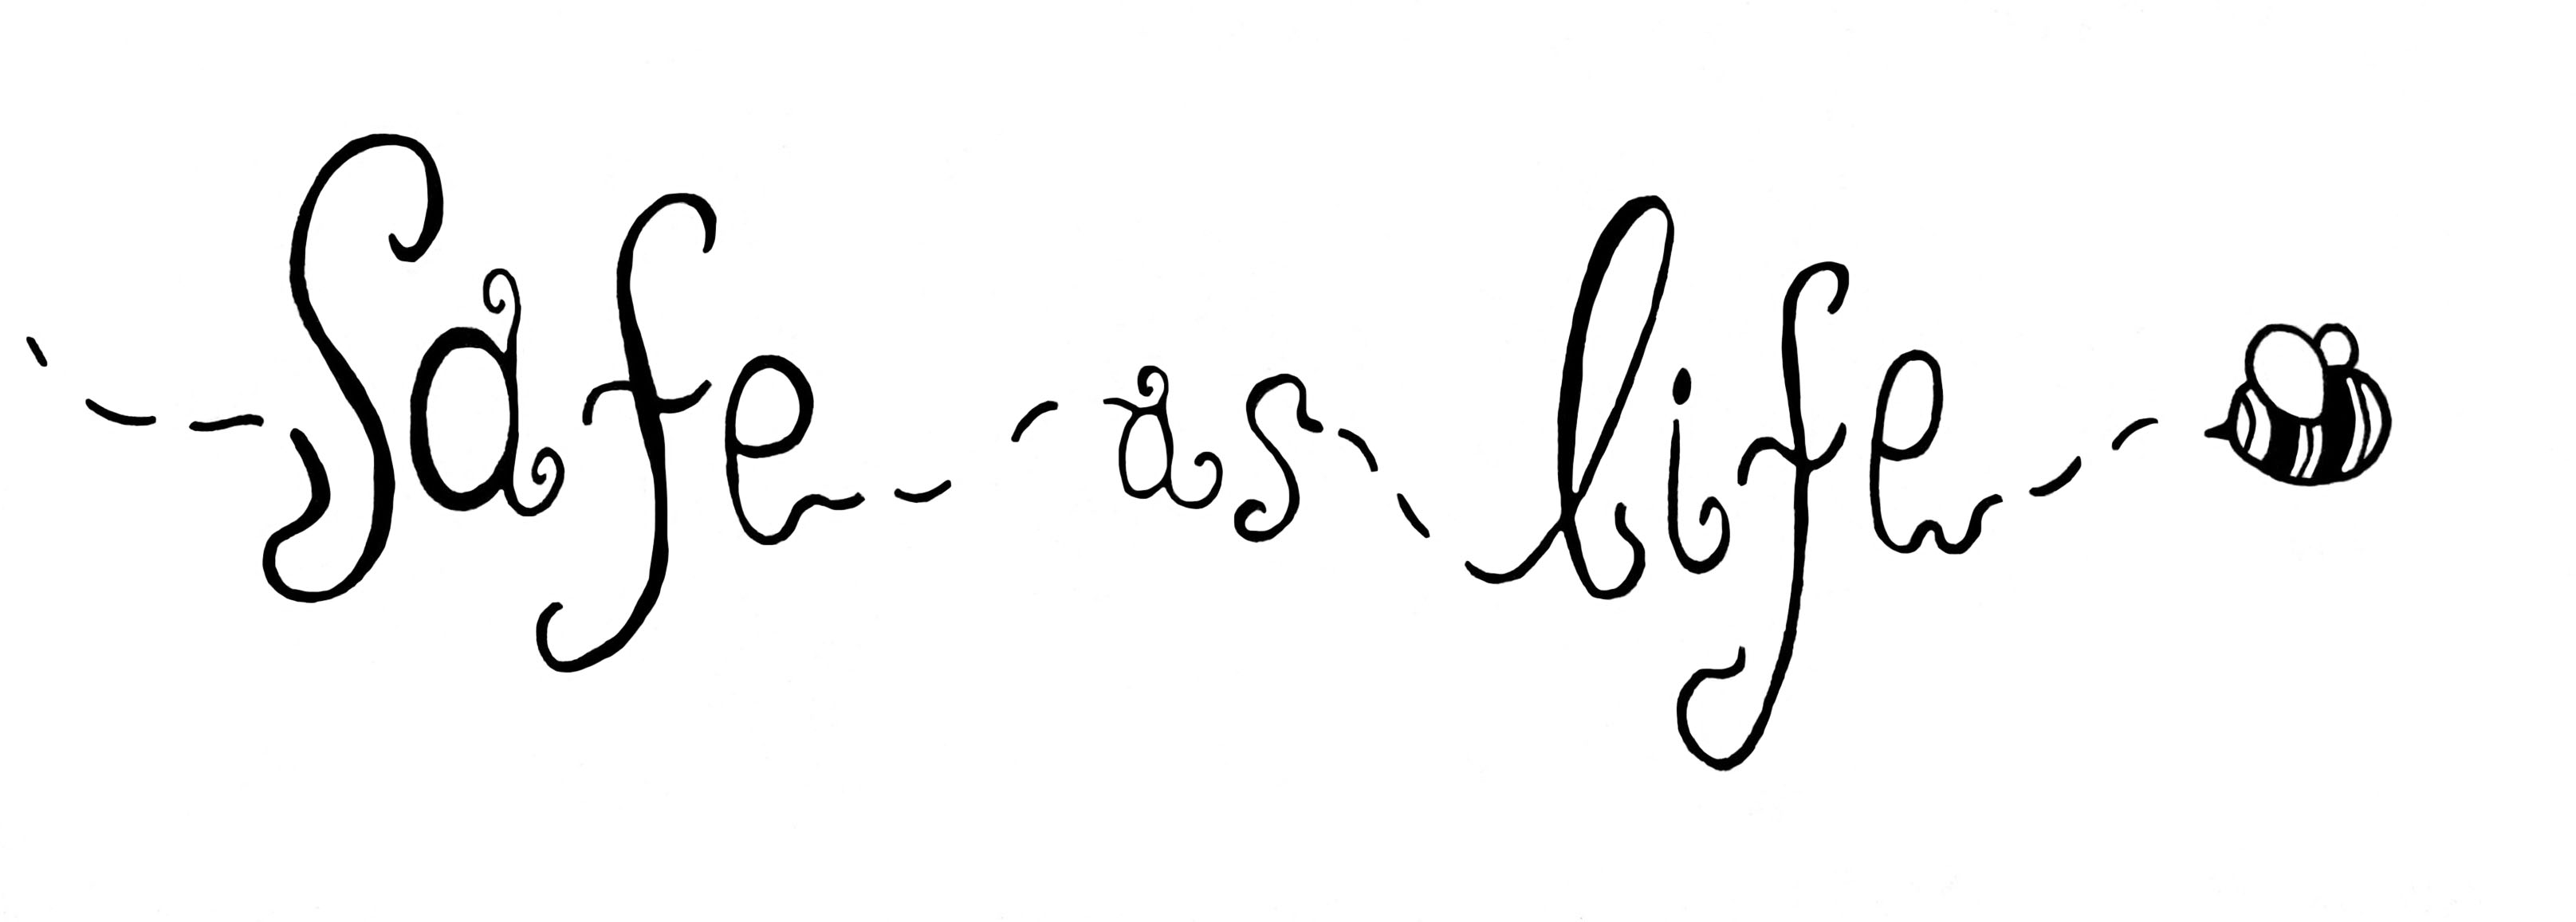 Safe as life